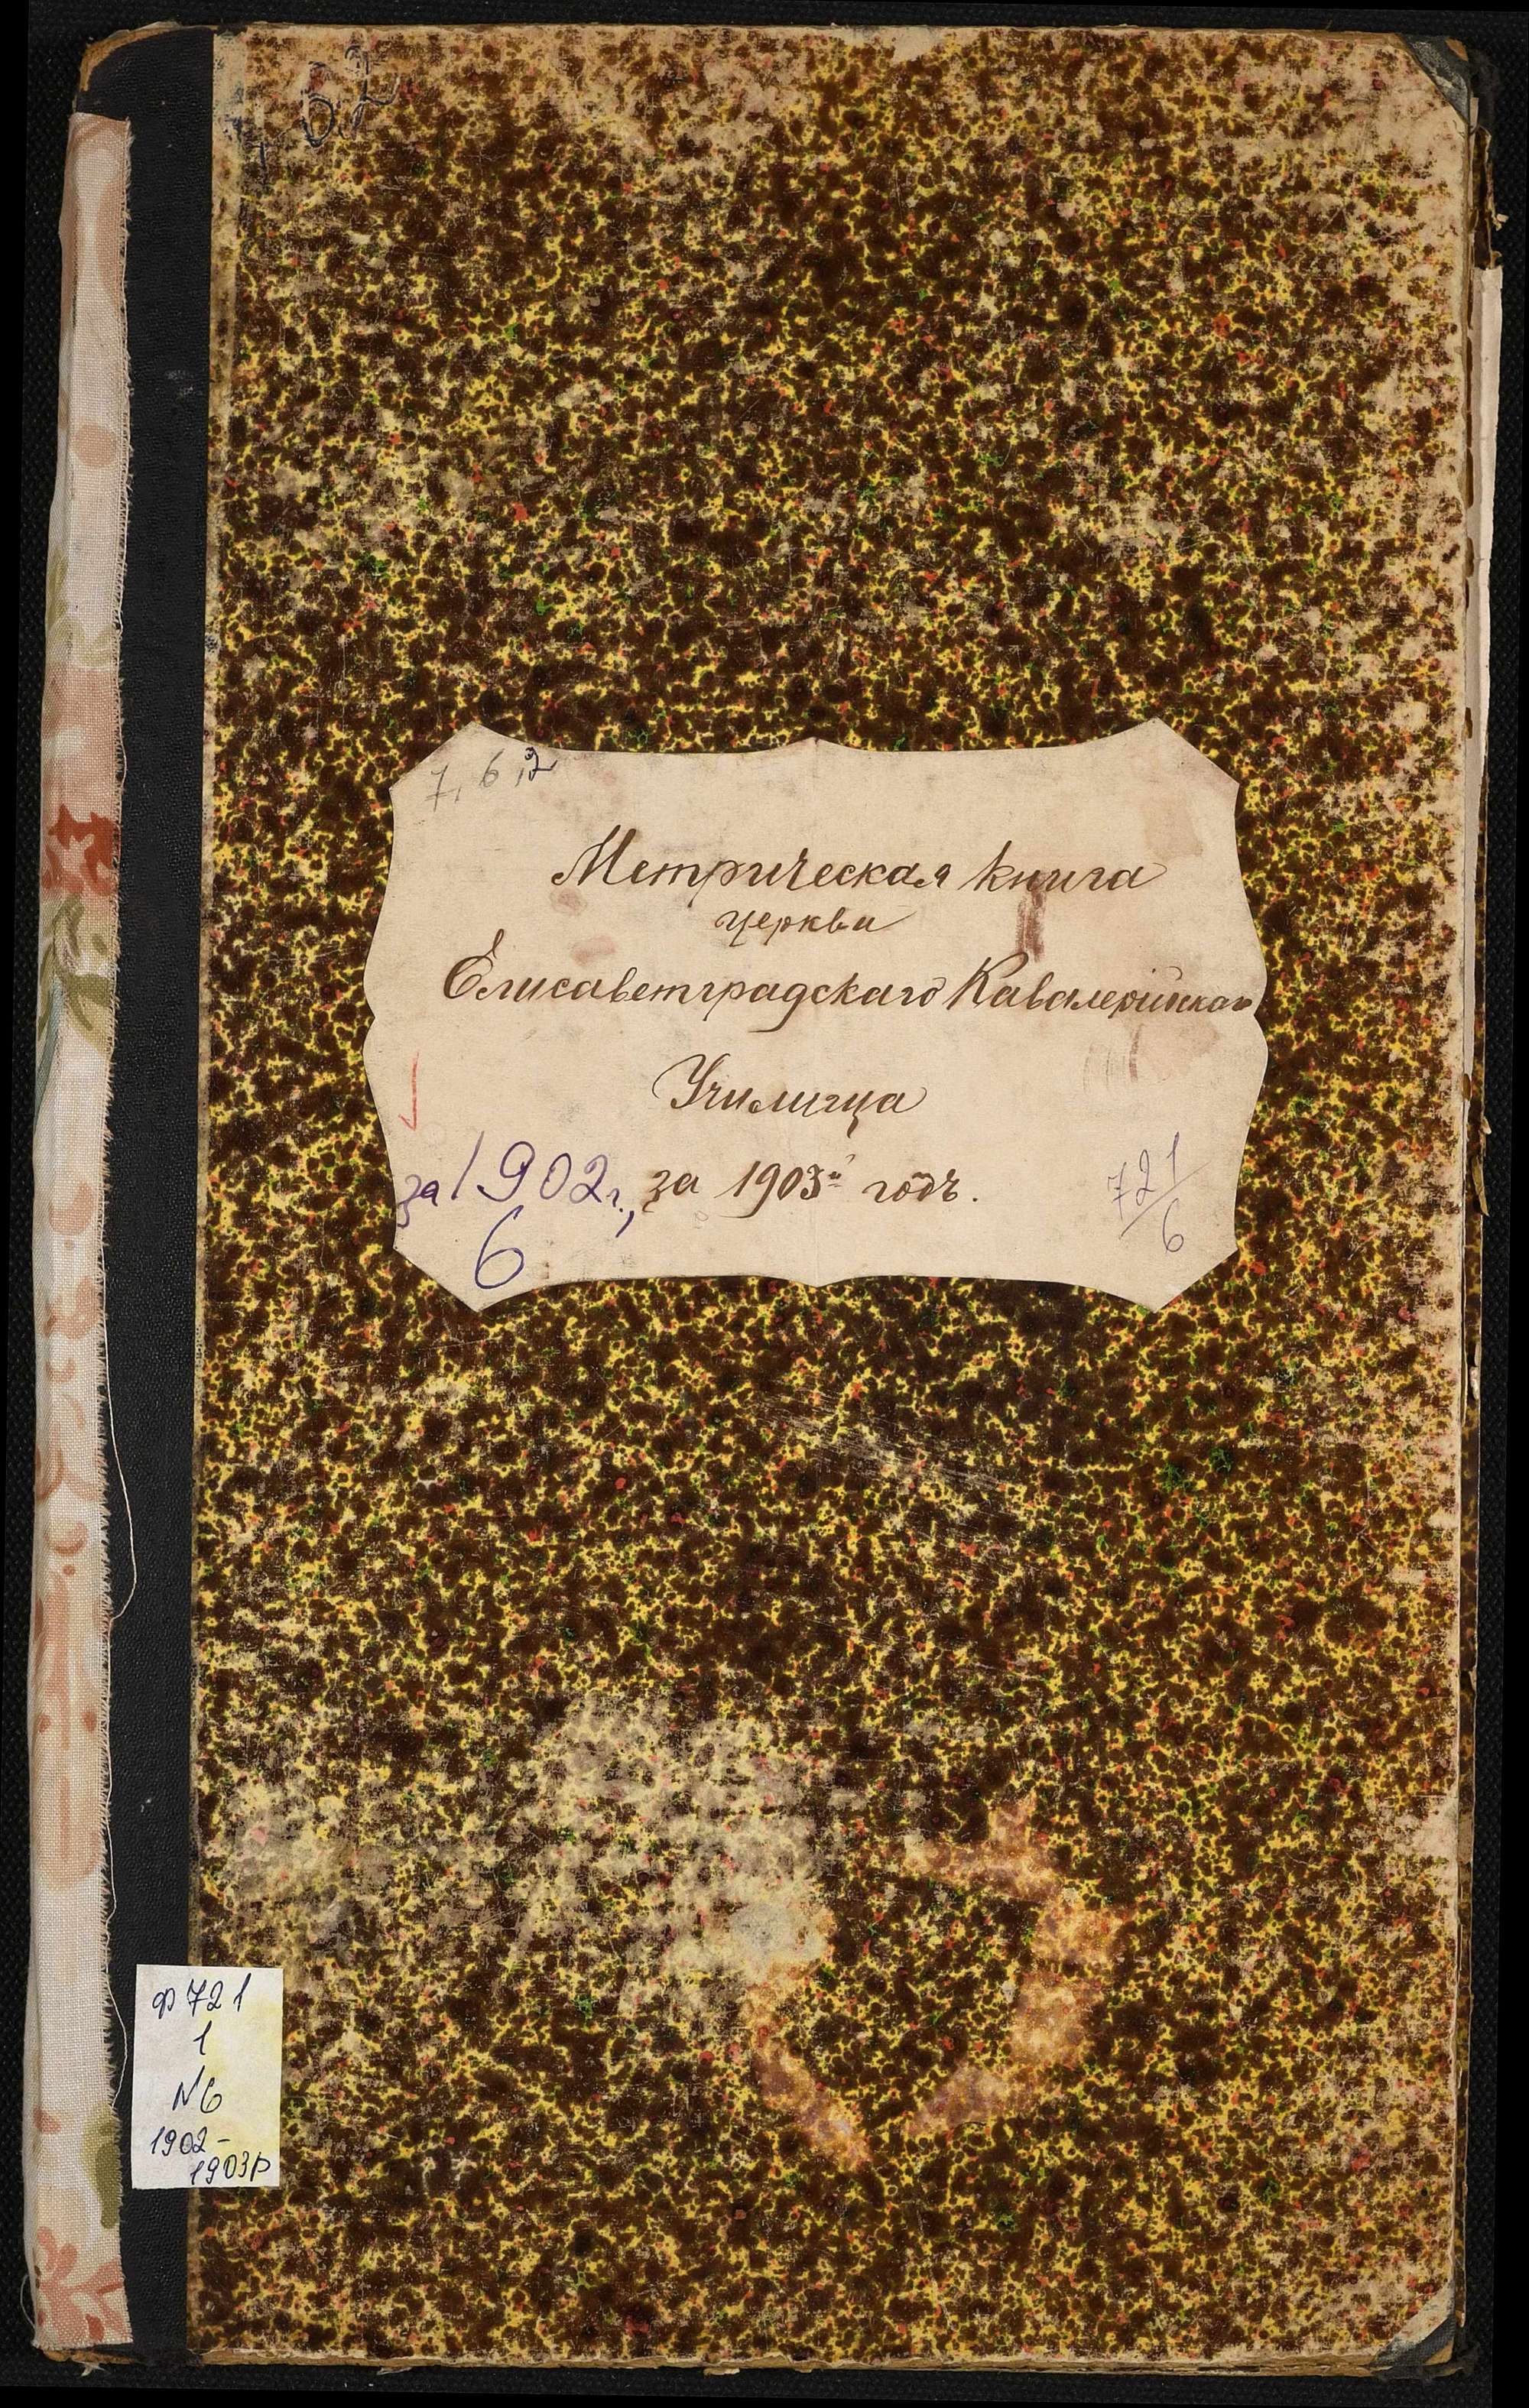 7, 6, 2
Метрическая книга
церкви
Елисаветградскаго Кавалерійскаго
Училища
за 1902 г., за 1903й годъ.
6
721/6
ф 721
1
№6
1902-
1903р